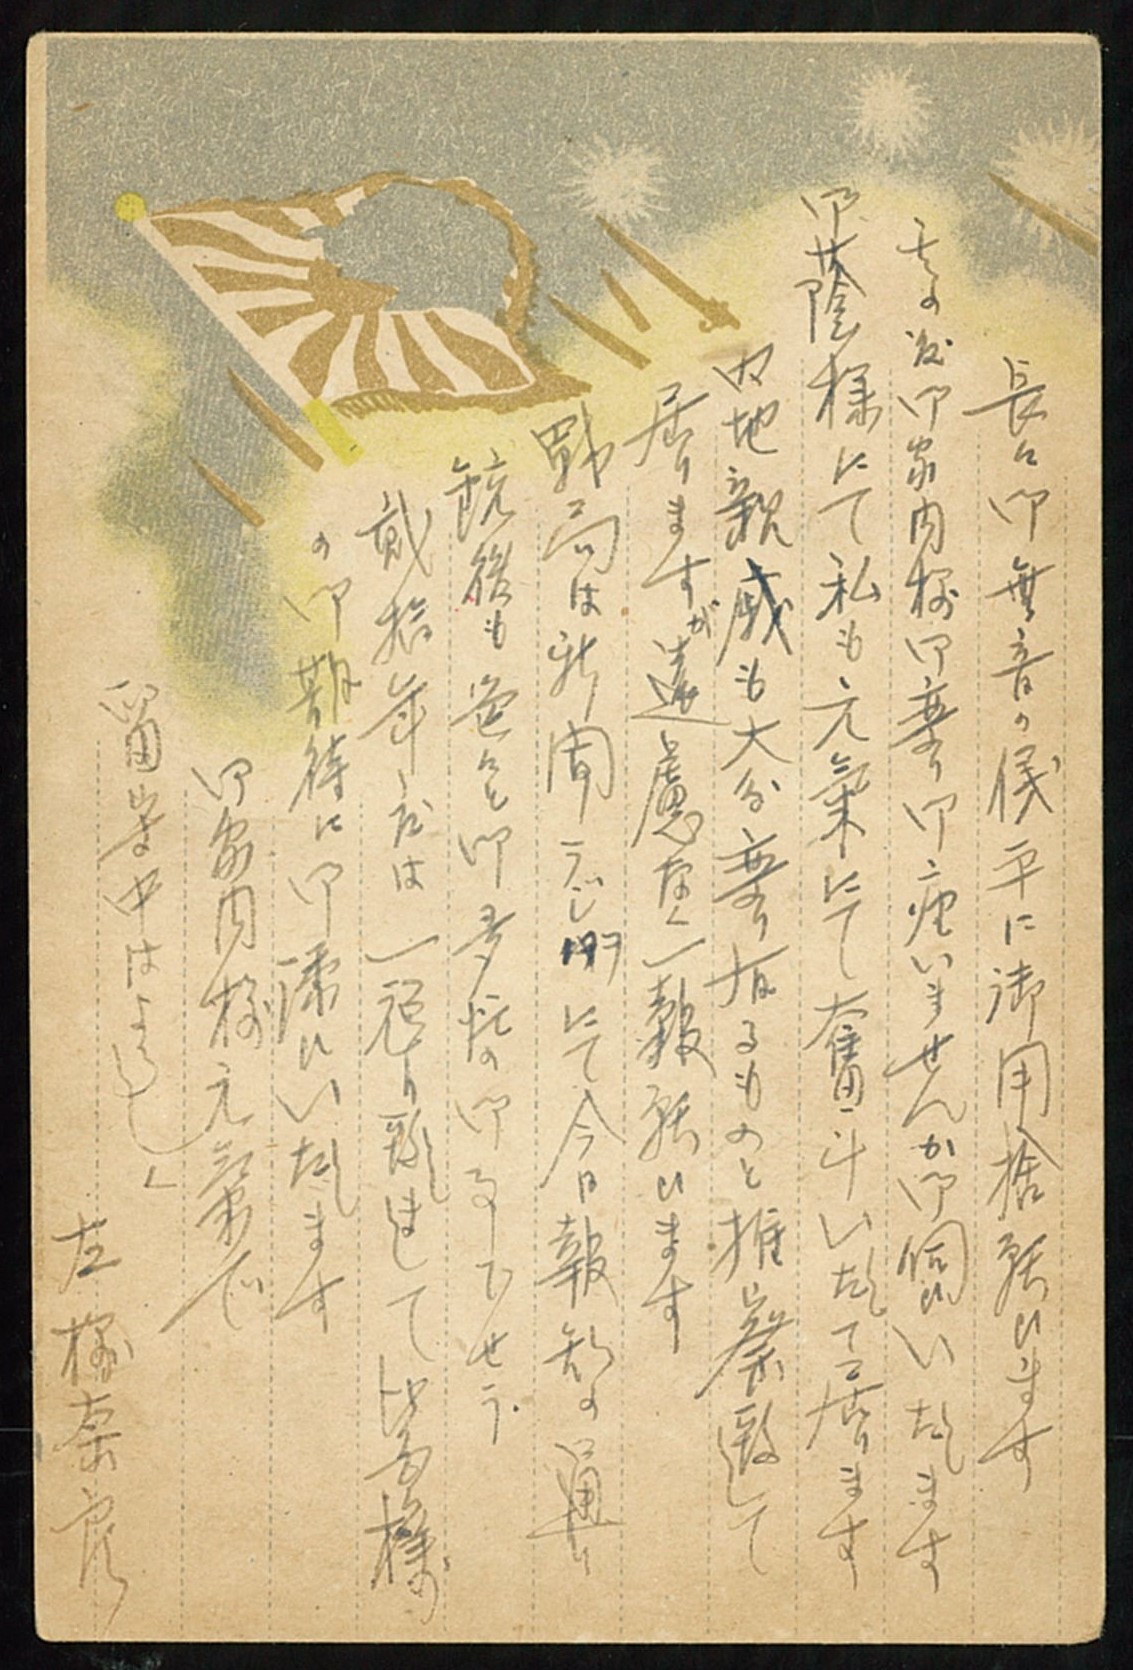 長々御無音の儀平に御用捨願ひます
其の後御家内様御変り御座いませんか御伺ひいたします
御蔭様にて私も元氣にて奮斗いたして居ります
内地親戚も大分変り有るものと推察致して
居りますが遠慮なく一報願ひます
戦局は新聞ラジオにて今日報知の通り
銃後も色々と御多忙の御事でせう
貮拾年度は一層り致しまして皆々様
の御期待に御添ひいたします
御家内様元氣で
留守中はよろしく
左様奈良